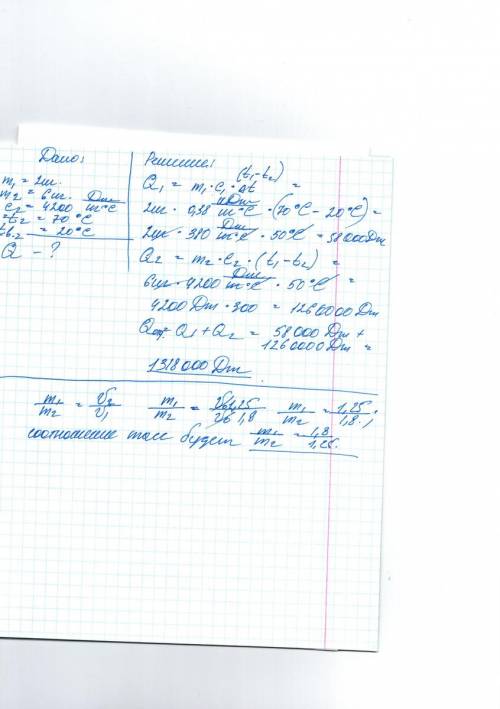 Дано:
m₁ = 2кг.
m₂ = 6кг.
c₂ = 4200 Дж/кг°С
t₂ = 70°С
t₂ = 20°С
Q – ?
Решение:
(t₁-t₂)
Q₁ = m₁·c₁·Δt =
2кг · 0,38 кДж/кг°С · (70°С – 20°С) =
2кг · 380 Дж/кг°С · 50°С = 58000Дж
Q₂ = m₂ · c₂ · (t₁ – t₂) =
6кг · 4200 Дж/кг°С · 50°С =
4200 Дж · 300 = 1260000 Дж
Qобщ = Q₁ + Q₂ = 58000 Дж +
1260000 Дж =
1318000 Дж
m₁/m₂ = v₂/v₁ m₁/m₂ = 1,25/1,8 m₁/m₂ = 1,25/1,8
соотношение тел будет m₁/m₂ = 1,8/1,25.